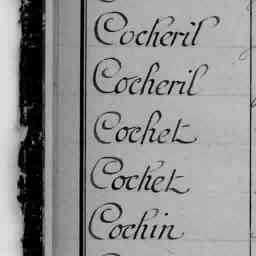 Cocheril
Cocheril
Cochet
Cochet
Cochin